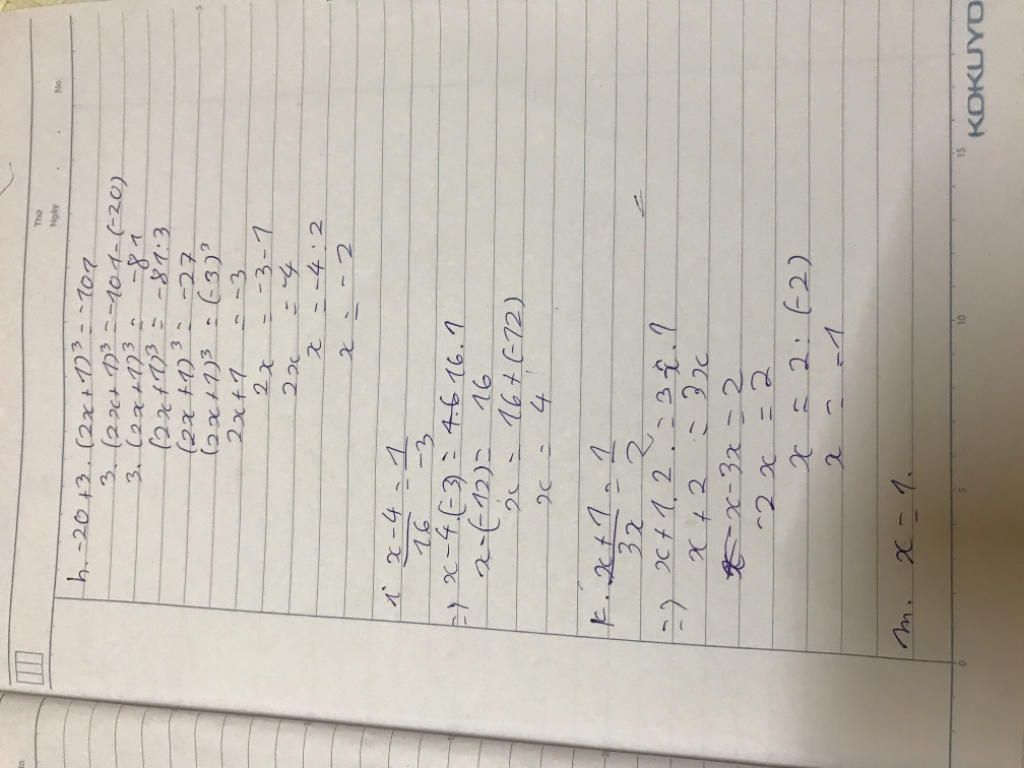 Thứ
Ngày
No.
h. -20 + 3. (2x+1)³ = -101
3. (2x+1)³ = -101 - (-20)
3. (2x+1)³ = -81
(2x+1)³ = -81 : 3
(2x+1)³ = -27
(2x+1)³ = (-3)³
2x+1 = -3
2x = -3-1
2x = -4
x = -4 : 2
x = -2
i. x-4/16 = 1/-3
=> x-4.(-3) = 16.1
x-(-12) = 16
x = 16+(-12)
x = 4
k. x+1/3x = 1/2
=> x+1.2 = 3x.1
=> x+2 = 3x
x-3x = 2
-2x = 2
x = 2 : (-2)
x = -1
m. x = 1.
5
10
15
KOKUYO
No.